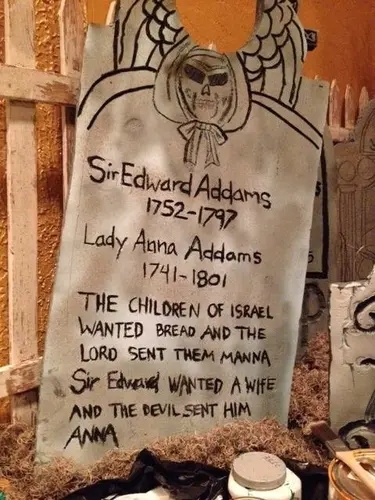 Sir Edward Addams
1752-1797
Lady Anna Addams
1741-1801
THE CHILDREN OF ISRAEL
WANTED BREAD AND THE
LORD SENT THEM MANNA
Sir Edward WANTED A WIFE
AND THE DEVIL SENT HIM
ANNA